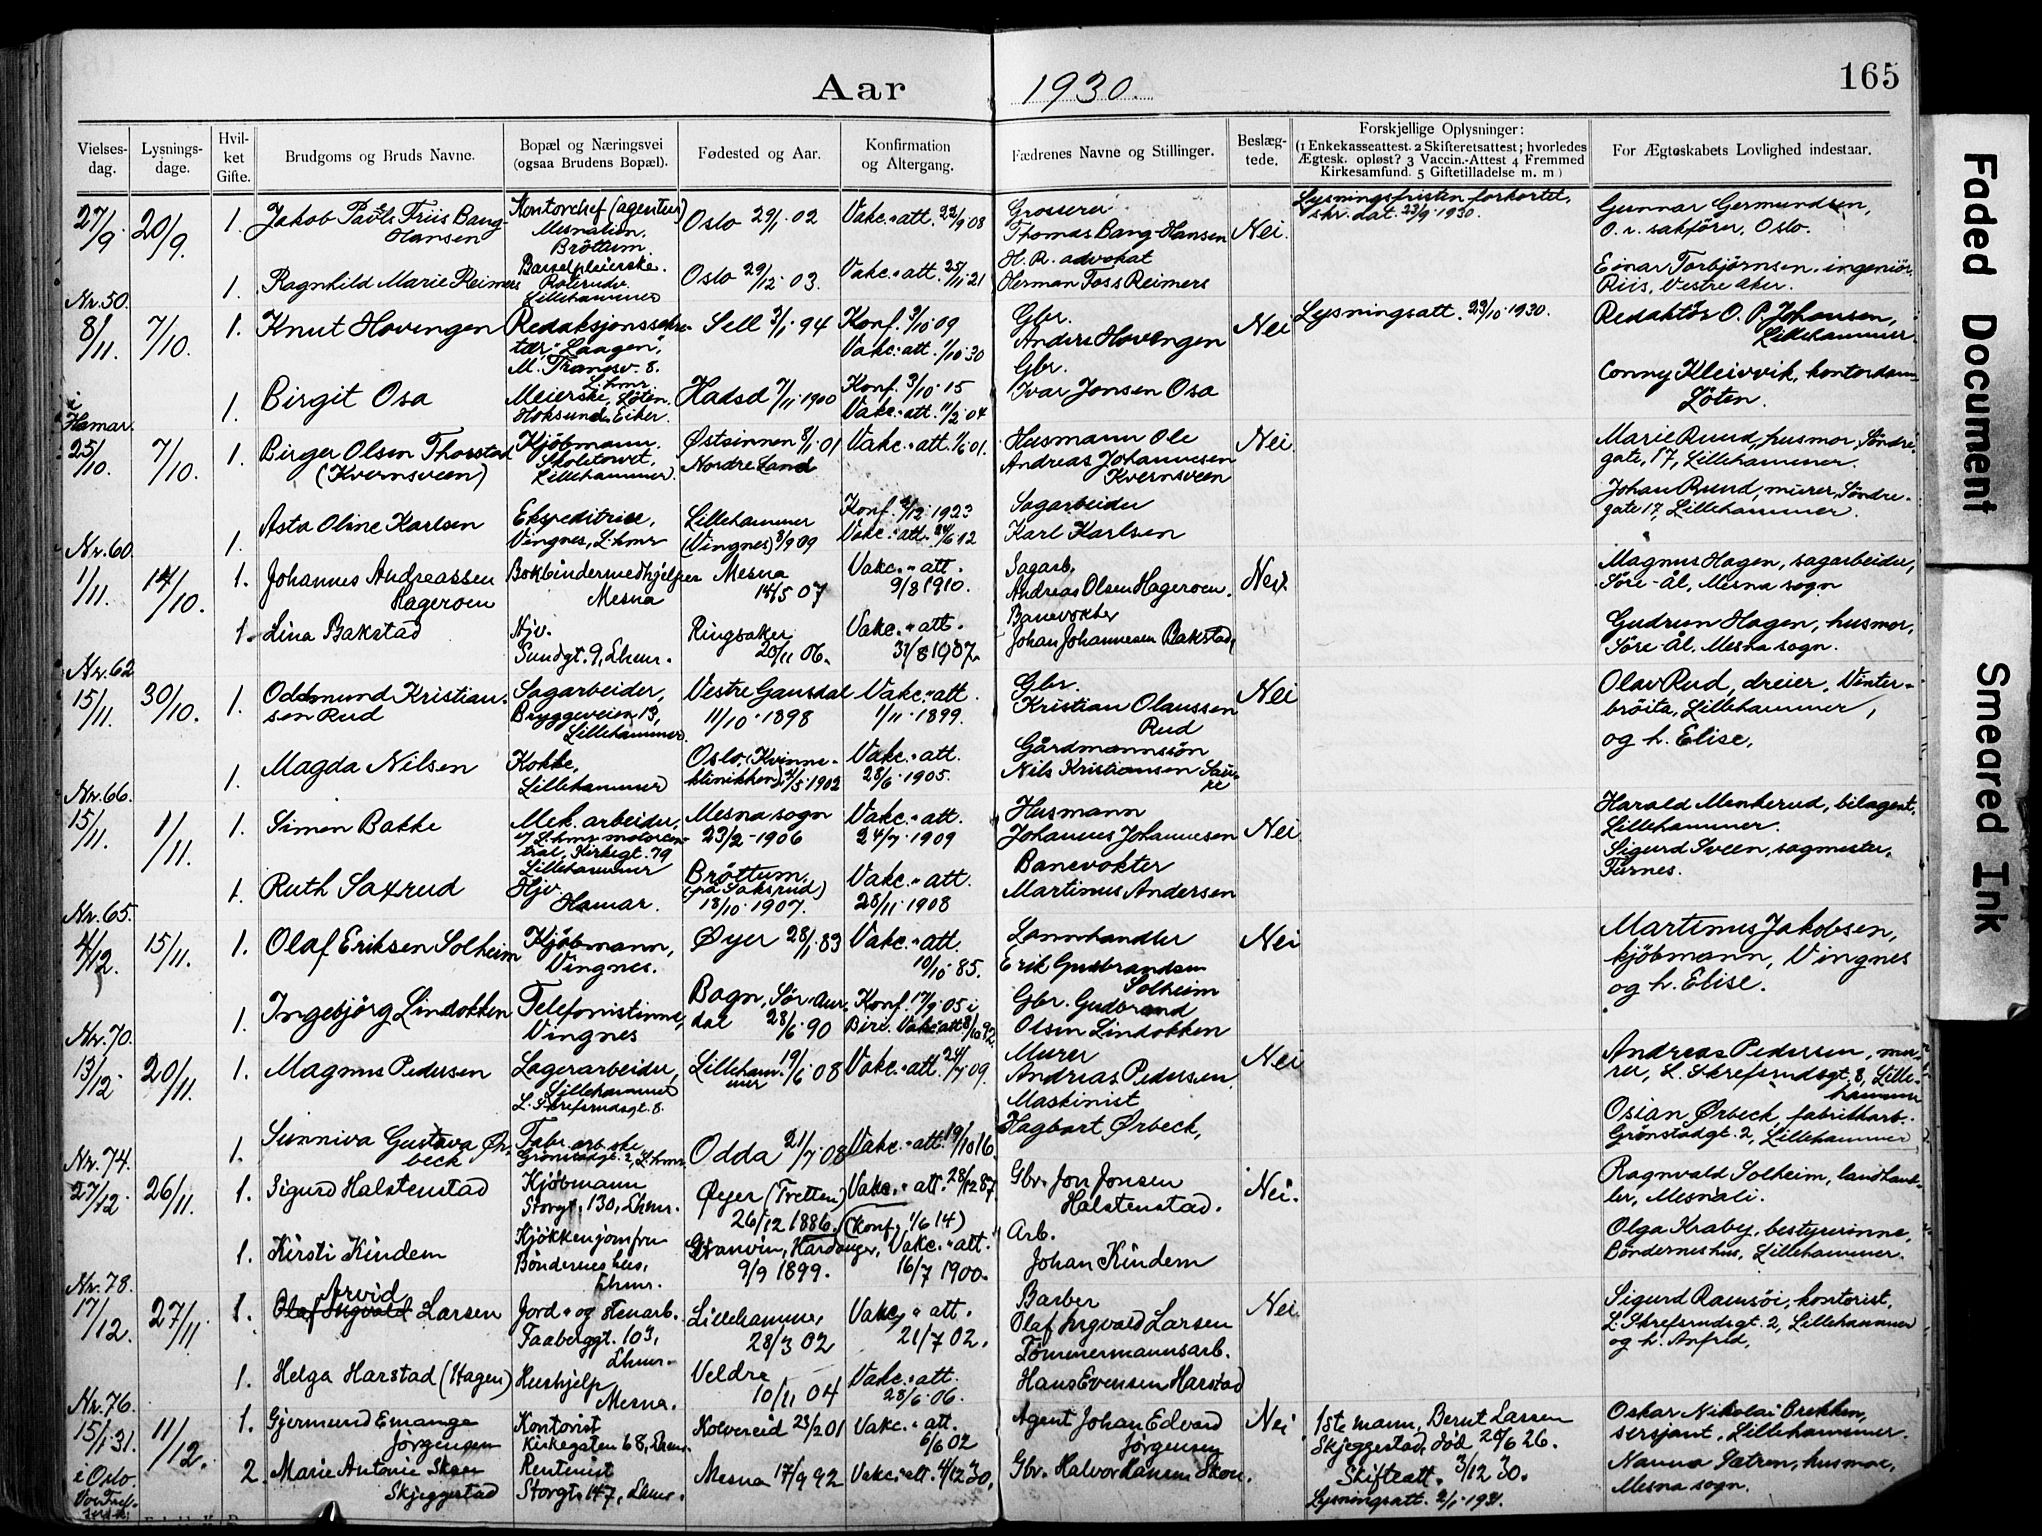 Aar 1930.
165
Vielses-dag.
Lysnings-dage.
Hvil-ket Gifte.
Brudgoms og Bruds Navne.
Bopæl og Næringsvei (ogsaa Brudens Bopæl).
Fødested og Aar.
Konfirmation og Altergang.
Fædrenes Navne og Stillinger.
Beslæg-tede.
Forskjellige Oplysninger:
(1 Enkekasseattest. 2 Skifteretsattest; hvorledes
Ægtesk. opløst? 3 Vaccin.-Attest 4 Fremmed
Kirkesamfund. 5 Giftetilladelse m. m)
For Ægteskabets Lovlighed indestaar.
27/9 20/9. 1. Jakob Pavels Friis Bang-Hansen
Kontorchef (agentur) Mesnalien, Bröttum
Oslo 29/1 02
Vakc.-att. 22/9 08
Grosserer Thomas Bang-Hansen
Nei.
Lysningsfristen forkortet, skr. dat. 23/9 1930.
Gunnar Germundsen, O.r. sakförer, Oslo.
1. Ragnhild Marie Reimers
Barselpleierske. Lillehammer
Oslo 29/12 03.
Vakc.-att. 25/11 21
H. R. advokat Herman Foss Reimers
Einar Torbjörnsen, ingeniör, Riis, Vestre Aker.
Nr. 50.
8/11. 7/10. 1. Knut Hovengen
Redaksjonssekretær "Laagen", L.hmr.
Sell 3/1 94
Konf. 3/10 09 Vakc.-att. 1/10 30
Gbr. Anders Hovengen
Nei
Lysningsatt. 23/10 1930.
Redaktör O. P. Johansen, Lillehammer.
i Hamar.
1. Birgit Osa
Meierske, Löten. Hoksund, Eiker.
7/11 1900
Konf. 3/10 15 Vakc.-att. 11/2 04
Gbr. Ivar Jonsen Osa
Conny Kleivvik, kontordame, Löten.
25/10. 7/10. 1. Birger Olsen Thorstad (Kvernsveen)
Kjöbmann. Lillehammer.
Østsinnen 8/1 01 Nordre Land
Vakc.-att. 1/6 01.
Husmann Ole Andreas Johannesen Kvernsveen
Nei
Marie Ruud, husmor, Söndregate, 17, Lillehammer.
Johan Ruud, murer, Söndregate 17, Lillehammer.
1. Asta Oline Karlsen
Ekspeditrise, Vingnes, L.hmr
Lillehammer (Vingnes) 8/9 09
Konf. 2/12 1923 Vakc.-att. 24/6 12
Sagarbeider Karl Karlsen
Nr. 60.
1/11. 14/10. 1. Johannes Andreassen Hageroen
Bokbindermedhjelper Mesna
Mesna 14/5 07
Vakc.-att. 9/8 1910.
Sagarb. Andreas Olsen Hageroen.
Nei
Magnus Hagen, sagarbeider, Söre-Ål, Mesna sogn
1. Lina Bakstad
Hjv. Sundgt. 9, Lhmr.
Ringsaker 20/11 06.
Vakc.-att. 31/8 1907.
Banevokter Johan Johannesen Bakstad,
Gudrun Hagen, husmor, Söre-Ål, Mesna sogn.
Nr. 62
15/11. 30/10. 1. Oddmund Kristiansen Rud
Sagarbeider, Bryggeveien 13, Lillehammer.
Vestre Gausdal 11/10 1898
Vakc.-att 1/11 1899.
Gbr. Kristian Olaussen Rud
Nei
Olav Rud, dreier, Vinterbröita, Lillehammer, og h. Elise,
1. Magda Nilsen
Kokke, Lillehammer
Oslo, (Kvinneklinikken) 1902
Vakc.-att. 28/6 1905.
Gårdmannssön Nils Kristiansen
Nr. 66.
15/11. 1/11. 1. Simen Bakke
Mek. arbeider, v/ L.hmr motorcentral, Kirkegt. 79 Lillehammer
Mesna sogn 23/2 1906
Vakc.-att. 24/7 1909
Husmann Johannes Johannesen
Nei
Harald Menkerud, bilagent, Lillehammer.
Sigurd Sveen, sagmester, Furnes.
1. Ruth Saxrud
Hjv. Hamar.
Bröttum, (på Saksrud) 18/10 1907.
Vakc.-att. 28/11 1908
Banevokter Martinus Andersen
Nr. 65.
4/12. 15/11. 1. Olaf Eriksen Solheim
Kjöbmann, Vingnes.
Øyer 28/1 83
Vakc.-att. 10/10 85.
Lannhandler Erik Gudbrandsen Solheim
Nei
Martinus Jakobsen, kjöbmann, Vingnes og h. Elise.
1. Ingebjörg Lindokken
Telefonistinne, Vingnes
Bagn, Sör-Aurdal 28/6 90
Konf. 17/9 05 i Biri. Vakc-att. 8/10 92.
Gbr. Gudbrand Olsen Lindokken
Nr. 70.
13/12. 20/11. 1. Magnus Pedersen
Lagerarbeider, Lillehammer L. Skrefsrudsgt. 8.
Lillehammer 19/6 08
Vakc.-att. 24/7 09.
Murer Andreas Pedersen.
Nei
Andreas Pedersen, murer, L. Skrefsrudsgt. 8, Lillehammer
Osian Ørbeck, fabrikkarb. Grönstadgt. 2, Lillehammer
1. Sunniva Gustava Ørbeck
Fabr. arb.ske Grönstadgt. 2, L.hmr.
Odda 21/7 08
Vakc.-att. 19/10 16.
Maskinist Hagbart Ørbeck,
Nr. 74.
27/12. 26/11. 1. Sigurd Halstenstad
Kjöbmann Storgt. 130, Lhmr.
Øyer (Tretten) 26/12 1886.
Vakc.-att. 28/12 87.
Gbr. Jon Jonsen Halstenstad.
Nei.
Ragnvald Solheim, landhandler, Mesnali.
1. Kirsti Kindem
Kjökkenjomfru Böndernes hus, Lhmr.
Granvin, Hardanger, 9/9 1899.
(Konf. 1/6 14) Vakc.-att. 16/7 1900.
Arb. Johan Kindem
Olga Kraby, bestyrerinne, Böndernes hus, Lillehammer.
Nr. 78.
17/12. 27/11. 1. Arvid Olaf Ingvald Larsen
Jord- og stenarb. Faaberggt. 103, Lhmr.
Lillehammer, 28/3 02
Vakc.-att. 21/7 02.
Barber Olaf Ingvald Larsen
Nei
Sigurd Ramsöi, kontorist, L. Skrefsrudsgt. 2, Lillehammer og h. Anfrid,
1. Helga Harstad (Hagen)
Hushjelp Mesna.
Veldre 10/11 04
Vakc.-att. 28/6 06.
Tömmermannsarb. Hans Evensen Harstad
Nr. 76.
15/1 31. 11/12. 1. Gjermund Emange Jörgensen
Kontorist Kirkegaten 68, Lhmr.
Kolvereid 23/2 01
Vakc.-att. 6/6 02
Agent Johan Edvard Jörgensen
Nei
1ste mann, Bernt Larsen Skjeggestad, död 20/6 26.
Skifteatt. 3/12 30.
Lysningsatt. 2/1 1931.
Oskar Nikolai Brekken, sersjant, Lillehammer.
i Oslo.
2. Marie Antonie Skoen Skjeggestad
Rentenist Storgt. 147, Lhmr.
Mesna 17/9 92
Vakc.-att. 4/12 30.
Gbr. Halvor Hansen Skoen.
Nanna Sætren, husmor, Mesna sogn.
Faded Document
Smeared Ink